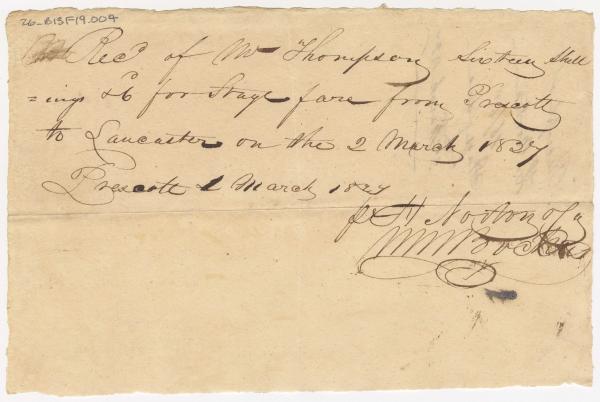 26-B15F19.009
Recd of Mr Thompson Sixteen Shill
=ings &6 for Stage fare from Prescott
to Lancaster on the 2 March 1837
Prescott 2 March 1837
H Norton